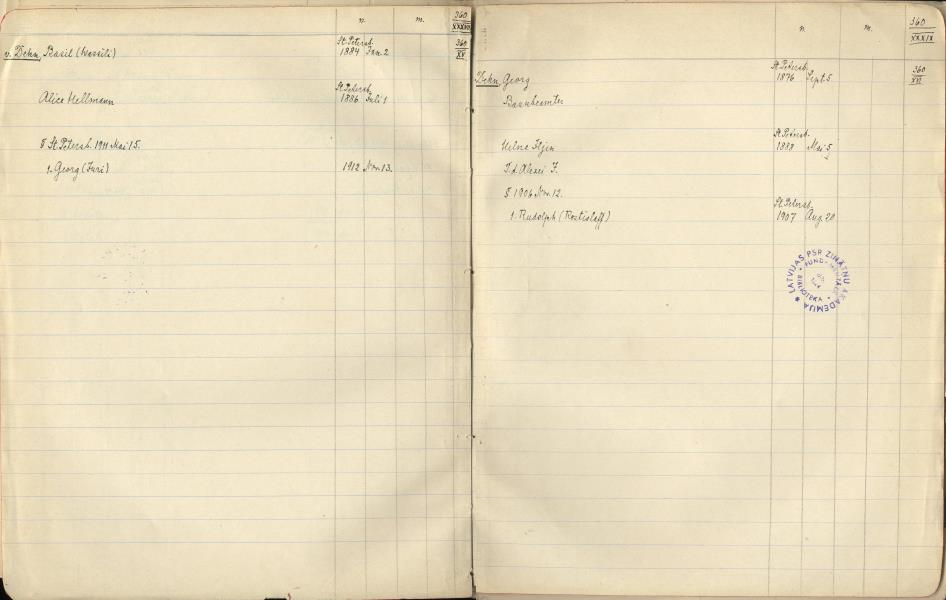 n. m. 360
XXXVIII
v. Dehn, Basil (Wassili) St. Petersb. 1884 Jan. 2 360
XV
Alice Hellmann St. Petersb. 1886 Juli 1
§ St. Petersb. 1911 Mai 15.
1. Georg (Juri) 1912 Nov. 13.
n. m. 360
XXXIX
Dehn, Georg St. Petersb. 1876 Sept. 5 360
XVI
Bankbeamter
Helne Iljin St. Petersb. 1888 Mai 5
T. d. Alexei I.
§ 1906 Nov. 12.
1. Rudolph (Rostislaff) St. Petersb. 1907 Aug. 20
LATVIJAS PSR ZINĀTŅU AKADĒMIJA
FUNDAMENTĀLĀ BIBLIOTEKA